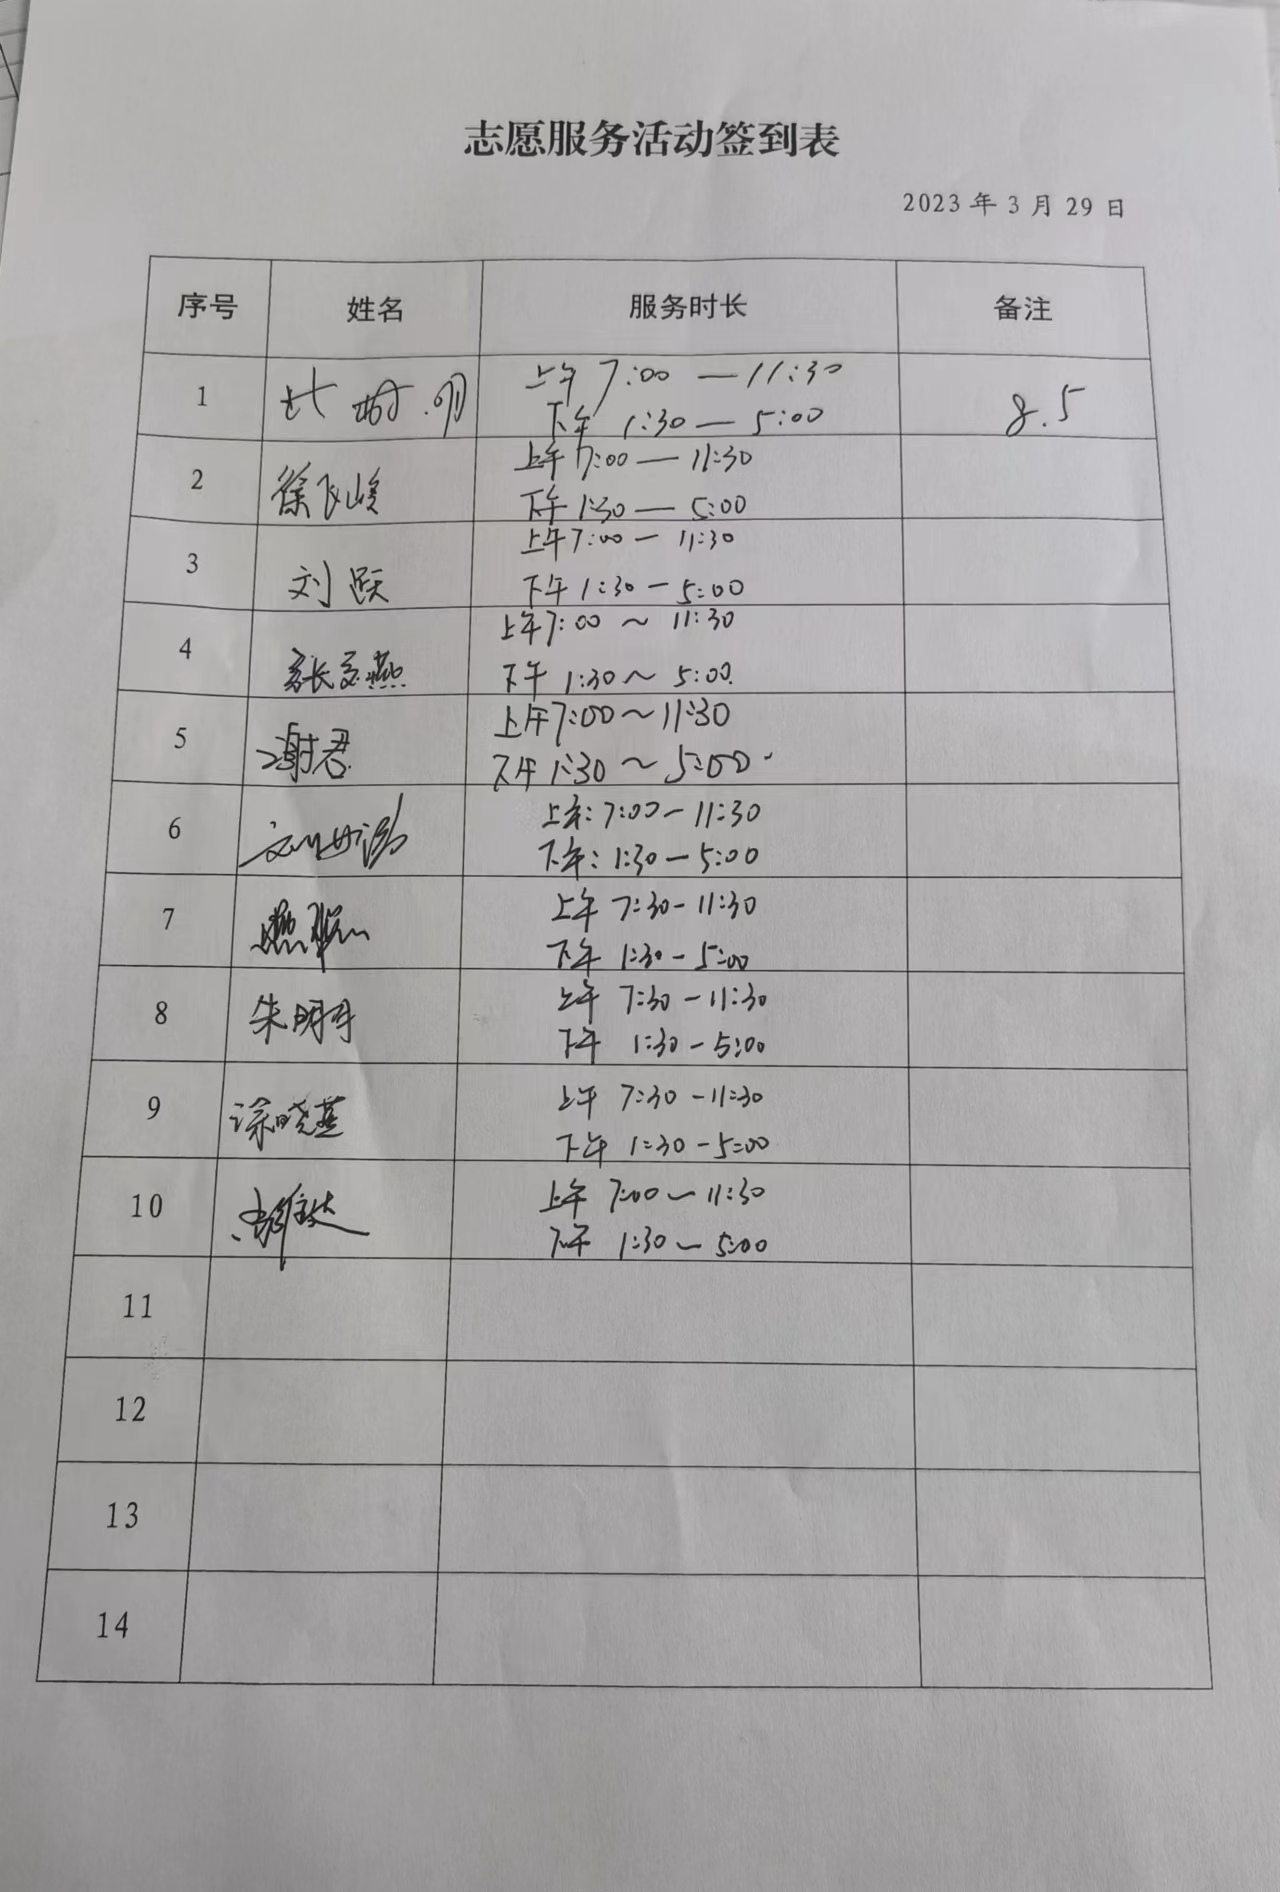 志愿服务活动签到表
2023 年 3 月 29 日
序号 姓名 服务时长 备注
1 上午 7:00 — 11:30 8.5
下午 1:30 — 5:00
2 徐飞峻 上午 7:00 — 11:30
下午 1:30 — 5:00
3 刘跃 上午 7:00 — 11:30
下午 1:30 — 5:00
4 上午 7:00 ~ 11:30
下午 1:30 ~ 5:00
5 谢君 上午 7:00 ~ 11:30
下午 1:30 ~ 5:00
6 上午: 7:00 - 11:30
下午: 1:30 - 5:00
7 上午 7:30 - 11:30
下午 1:30 - 5:00
8 上午 7:30 - 11:30
下午 1:30 - 5:00
9 涂晓燕 上午 7:30 - 11:30
下午 1:30 - 5:00
10 上午 7:00 ~ 11:30
下午 1:30 ~ 5:00
11
12
13
14